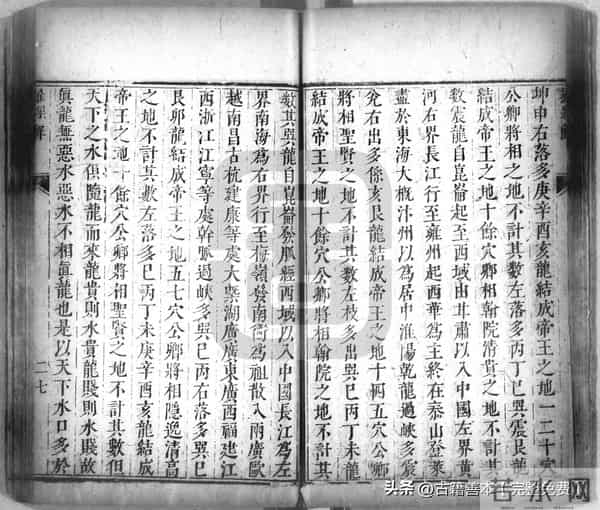 坤申右落多庚辛酉亥龍結成帝王之地一二十穴
公卿將相之地不計其數左落多丙丁巳巽震艮龍
結成帝王之地十餘穴卿相翰院清貴之地不計其
數震龍自崑崙起至西域由甘肅以入中國左界黃
河右界長江行至雍州起西華爲王終在泰山登萊
盡於東海大概汴州以爲居中淮陽乾龍過峽多震
兊右出多係亥艮龍結成帝王之地十四五穴公卿
將相聖賢之地不計其數左枝多出巽巳丙丁未龍
結成帝王之地十餘穴公卿將相翰院之地不計其
數其巽龍自崑崙發脉經西域以入中國長江爲左
界南海爲右界行至梅嶺發南衡爲祖散入兩廣歐
越南昌古杭建康等處大槩湖廣廣東廣西福建江
西浙江江寧等處幹脉過峽多巽巳丙右落多巽巳
艮卯龍結成帝王之地五七穴公卿將相隱逸清高
之地不計其數左落多巳丙丁未庚辛酉亥龍結成
帝王之地十餘穴公卿將相聖賢之地不計其數但
天下之水俱隨龍而來龍貴則水貴龍賤則水賤故
眞龍無惡水惡水不相眞龍也是以天下水口多於
二七
头条 @古籍善本(完整免费)